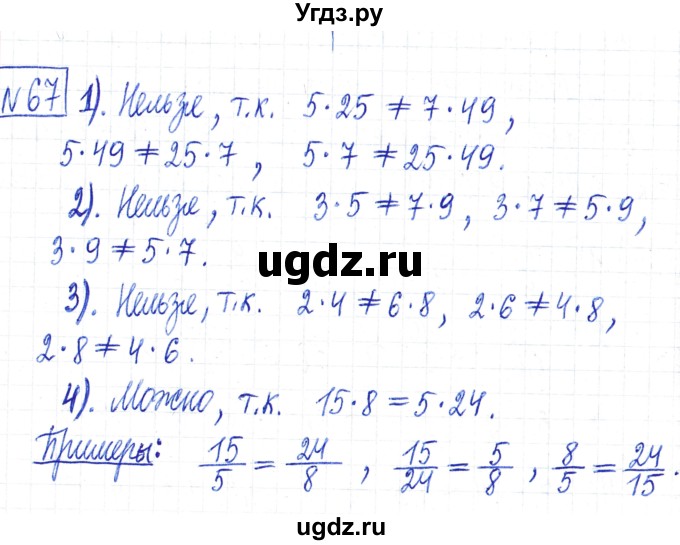 Угдз.ру
№67 1). Нельзя, т.к. 5·25 ≠ 7·49,
5·49 ≠ 25·7, 5·7 ≠ 25·49.
2). Нельзя, т.к. 3·5 ≠ 7·9, 3·7 ≠ 5·9,
3·9 ≠ 5·7.
ugdz.ru
3). Нельзя, т.к. 2·4 ≠ 6·8, 2·6 ≠ 4·8,
2·8 ≠ 4·6.
4). Можно, т.к. 15·8 = 5·24.
Примеры: 15/5 = 24/8, 15/24 = 5/8, 8/5 = 24/15.
ugdz.ru